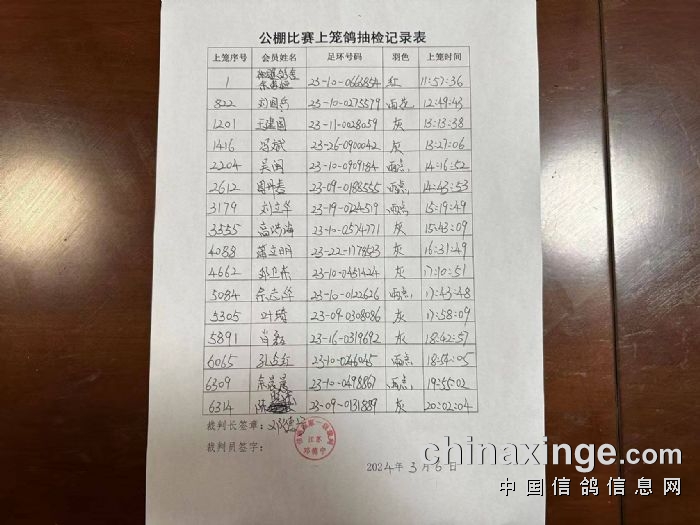 公棚比赛上笼鸽抽检记录表
上笼序号 会员姓名 足环号码 羽色 上笼时间
1 23-10-0663854 红 11:57:36
822 刘国兵 23-10-0275579 雨花 12:49:43
1201 王建国 23-11-0028059 灰 13:13:38
1416 冯斌 23-26-0900042 灰 13:27:06
2204 吴闯 23-10-0909184 雨点 14:16:52
2612 23-09-0188555 雨点 14:43:53
3179 刘立华 23-19-0224519 雨点 15:19:49
3555 高洪海 23-10-0574771 灰 15:43:09
4088 蒲立明 23-22-1778523 灰 16:31:49
4662 郑卫东 23-10-0451424 灰 17:10:51
5084 余志华 23-10-0122626 雨点 17:43:48
5305 叶琦 23-09-0308086 灰 17:58:09
5891 肖磊 23-16-0319692 灰 18:42:57
6065 孔占红 23-10-0246045 雨点 18:54:05
6309 23-10-0498867 雨点 19:55:02
6314 陈 23-09-0131889 灰 20:02:04
裁判长签章:
江苏
邓德宁
裁判员签字:
2024年3月6日
chinaxinge.com
中国信鸽信息网